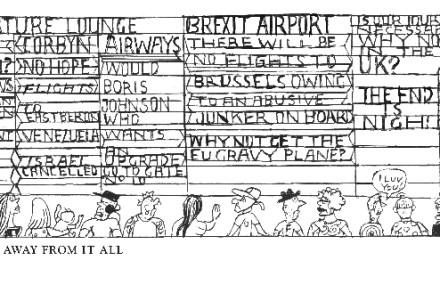 TURE LOUNGE
CORBYN
NO HOPE
FLIGHTS
TO
EAST BERLIN
VENEZUELA
ISRAEL
CANCELLED
AIRWAYS
WOULD
BORIS
JOHNSON
WHO
WANTS
AN
UPGRADE
GO TO GATE
NO 10
BREXIT AIRPORT
THERE WILL BE
NO FLIGHTS TO
BRUSSELS OWING
TO AN ABUSIVE
JUNKER ON BOARD
WHY NOT GET THE
EU GRAVY PLANE?
IS YOUR JOUR
NECESSAR
WHY NO
IN THE
UK?
THE END
IS
NIGH!
I LUV
YOU
AWAY FROM IT ALL